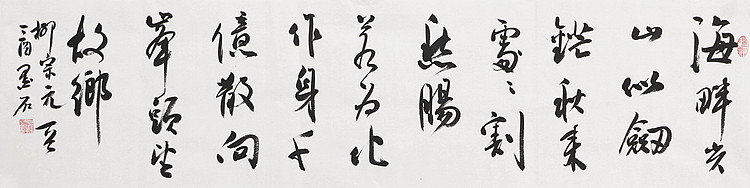 海畔尖
山似劒
鋩秋来
處〻割
愁腸
若为化
作身千
億散向
峯頭望
故鄉
柳宗元
丁酉墨石